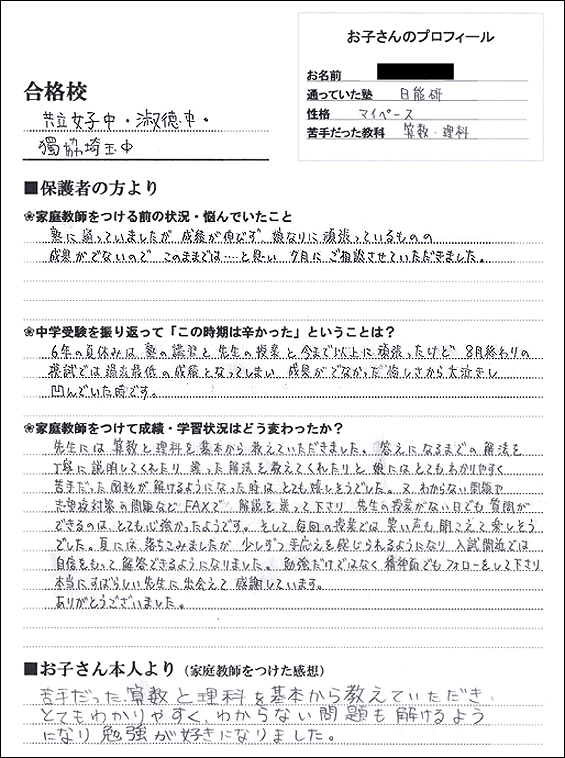 お子さんのプロフィール
お名前
通っていた塾 日能研
性格 マイペース
苦手だった教科 算数・理科
合格校
共立女子中・淑徳中・
獨協埼玉中
■保護者の方より
❀家庭教師をつける前の状況・悩んでいたこと
塾に通っていましたが 成績が伸びず、娘なりに頑張っているものの
成果がでないので このままでは…と思い 7月にご相談させていただきました。
❀中学受験を振り返って「この時期は辛かった」ということは？
6年の夏休みは 塾の講習と先生の授業と今まで以上に頑張ったけど 8月終わりの
模試では過去最低の成績となってしまい 成果がでなかった悔しさから大泣きし
凹んでいた時です。
❀家庭教師をつけて成績・学習状況はどう変わったか？
先生には 算数と理科を基本から教えていただきました。答えになるまでの解法を
丁寧に説明してくれたり 違った解法を教えてくれたりと 娘にはとてもわかりやすく
苦手だった図形が解けるようになった時は、とても嬉しそうでした。又、わからない問題や
志望校対策の問題など FAXで、解説を送って下さり 先生の授業がない日でも質問が
できるのは、とても心強かったようです。そして毎回の授業では 笑い声も聞こえて楽しそう
でした。夏には落ちこみましたが 少しずつ手応えを感じられるようになり 入試間近では
自信をもって解答できるようになりました。勉強だけではなく精神面でもフォローをして下さり
本当にすばらしい先生に出会えて 感謝しています。
ありがとうございました。
■お子さん本人より（家庭教師をつけた感想）
苦手だった算数と理科を基本から教えていただき、
とてもわかりやすく、わからない問題も解けるよう
になり勉強が好きになりました。